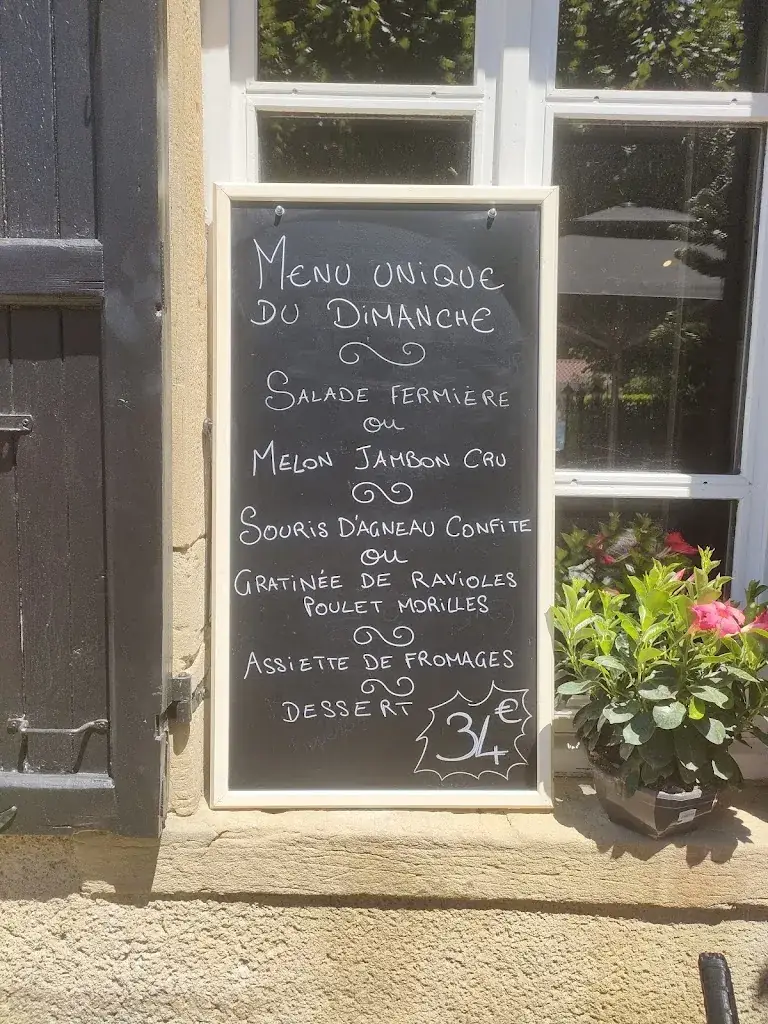 MENU UNIQUE
DU DIMANCHE
SALADE FERMIÈRE
OU
MELON JAMBON CRU
SOURIS D'AGNEAU CONFITE
OU
GRATINÉE DE RAVIOLES
POULET MORILLES
ASSIETTE DE FROMAGES
DESSERT
34€